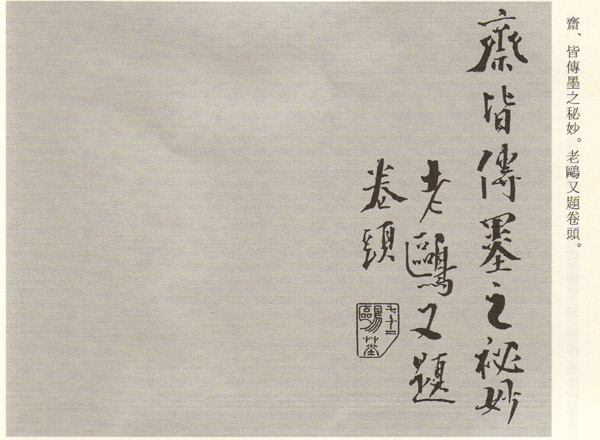 齋、皆傳墨之秘妙。老鷗又題卷頭。
齋皆傳墨之祕妙
老鷗又題
卷頭
七十二
鷗